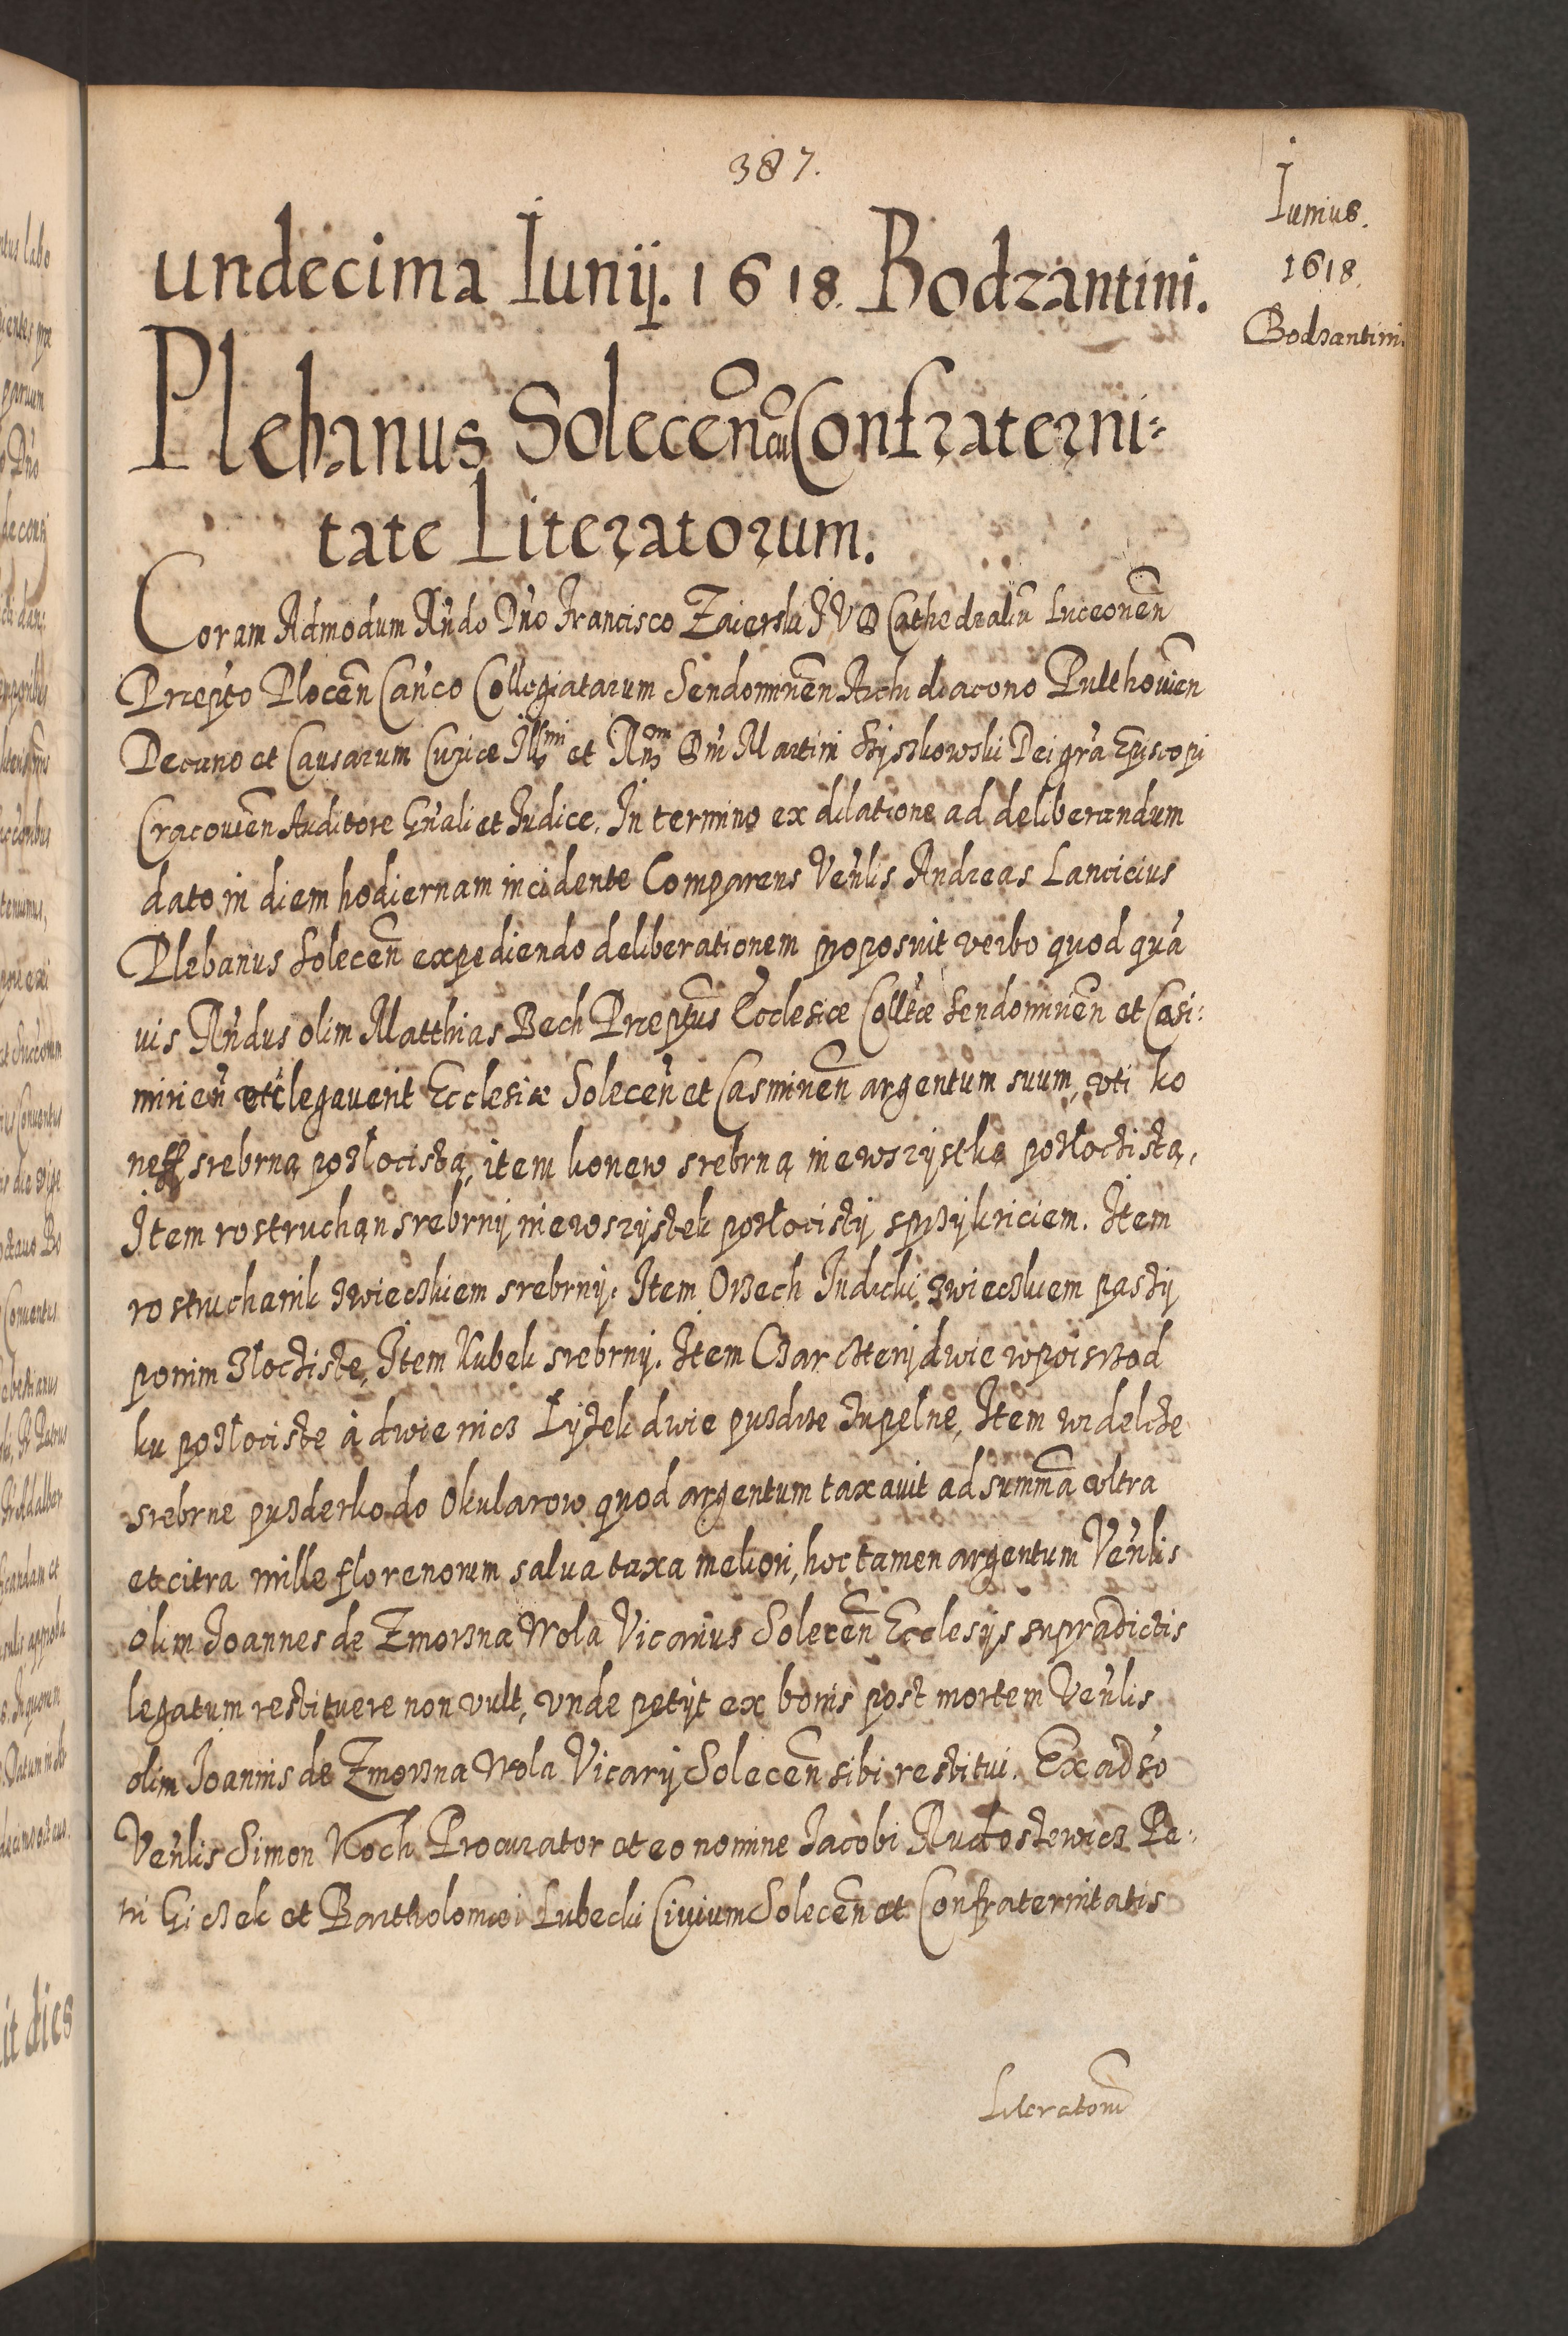 387.
Iunius.
1618.
Bodzantini.
undecima Iunij. 1618. Bodzantini.
Plebanus Solecen̄ cū Confraterni=
tate Literatorum.
Coram Admodum Rn̄do Dn̄o Francisco Zaierski I V D Cathedraliū Luceonen̄
Præpto Plocen̄ Can̄co Collegiatarum Sendomirien̄ Archidiacono Pulthouien̄
Decano et Causarum Curiæ Illmi et Rndmi Dn̄i Martini Szyszkowski Dei grā Episcopi
Cracouien̄ Auditore Gn̄ali et Iudice. In termino ex dilatione ad deliberandum
dato in diem hodiernam incidente Comparens Ven̄lis Andreas Lancicius
Plebanus Solecen̄ expediendo deliberationem proposuit verbo quod quā
uis Rn̄dus olim Matthias Bech Præptus Ecclesiæ Colltæ Sendomirien̄ et Casi:
mirien̄ etc legauerit Ecclesiæ Solecen̄ et Casmirien̄ argentum suum, vti ko
neff srebrną pozlocistą, item konew srebrną niewszystkę pozłocistą,
Item rostruchan srebrny niewszystek pozłocisty sprzykriciem. Item
rostruchanik zwieczkiem srebrny. Item Orzech Indicki zwieczkiem pasty
ponim złociste, Item Kubek srebrny. Item Czar czterij dwie wposrzod
ku pozłociste à dwie nicz Lyżek dwie puzdrze zupelne, Item widelcze
srebrne puzderko do Okularow quod argentum taxauit ad summā vltra
et citra mille florenorum salua taxa meliori, hoc tamen argentum Ven̄lis
olim Joannes de Zmorzna Wola Vicarius Solecen̄ Ecclesijs supradictis
legatum restituere non vult, vnde petijt ex bonis post mortem Ven̄lis
olim Joannis de Zmorzna Wola Vicarij Solecen̄ sibi restitui. Ex aduso
Ven̄lis Simon Koch Procurator et eo nomine Jacobi Rudostewicz Pe:
tri Giczek et Bartholomæi Lubecki Ciuium Solecen̄ et Confraternitatis
Literatorū